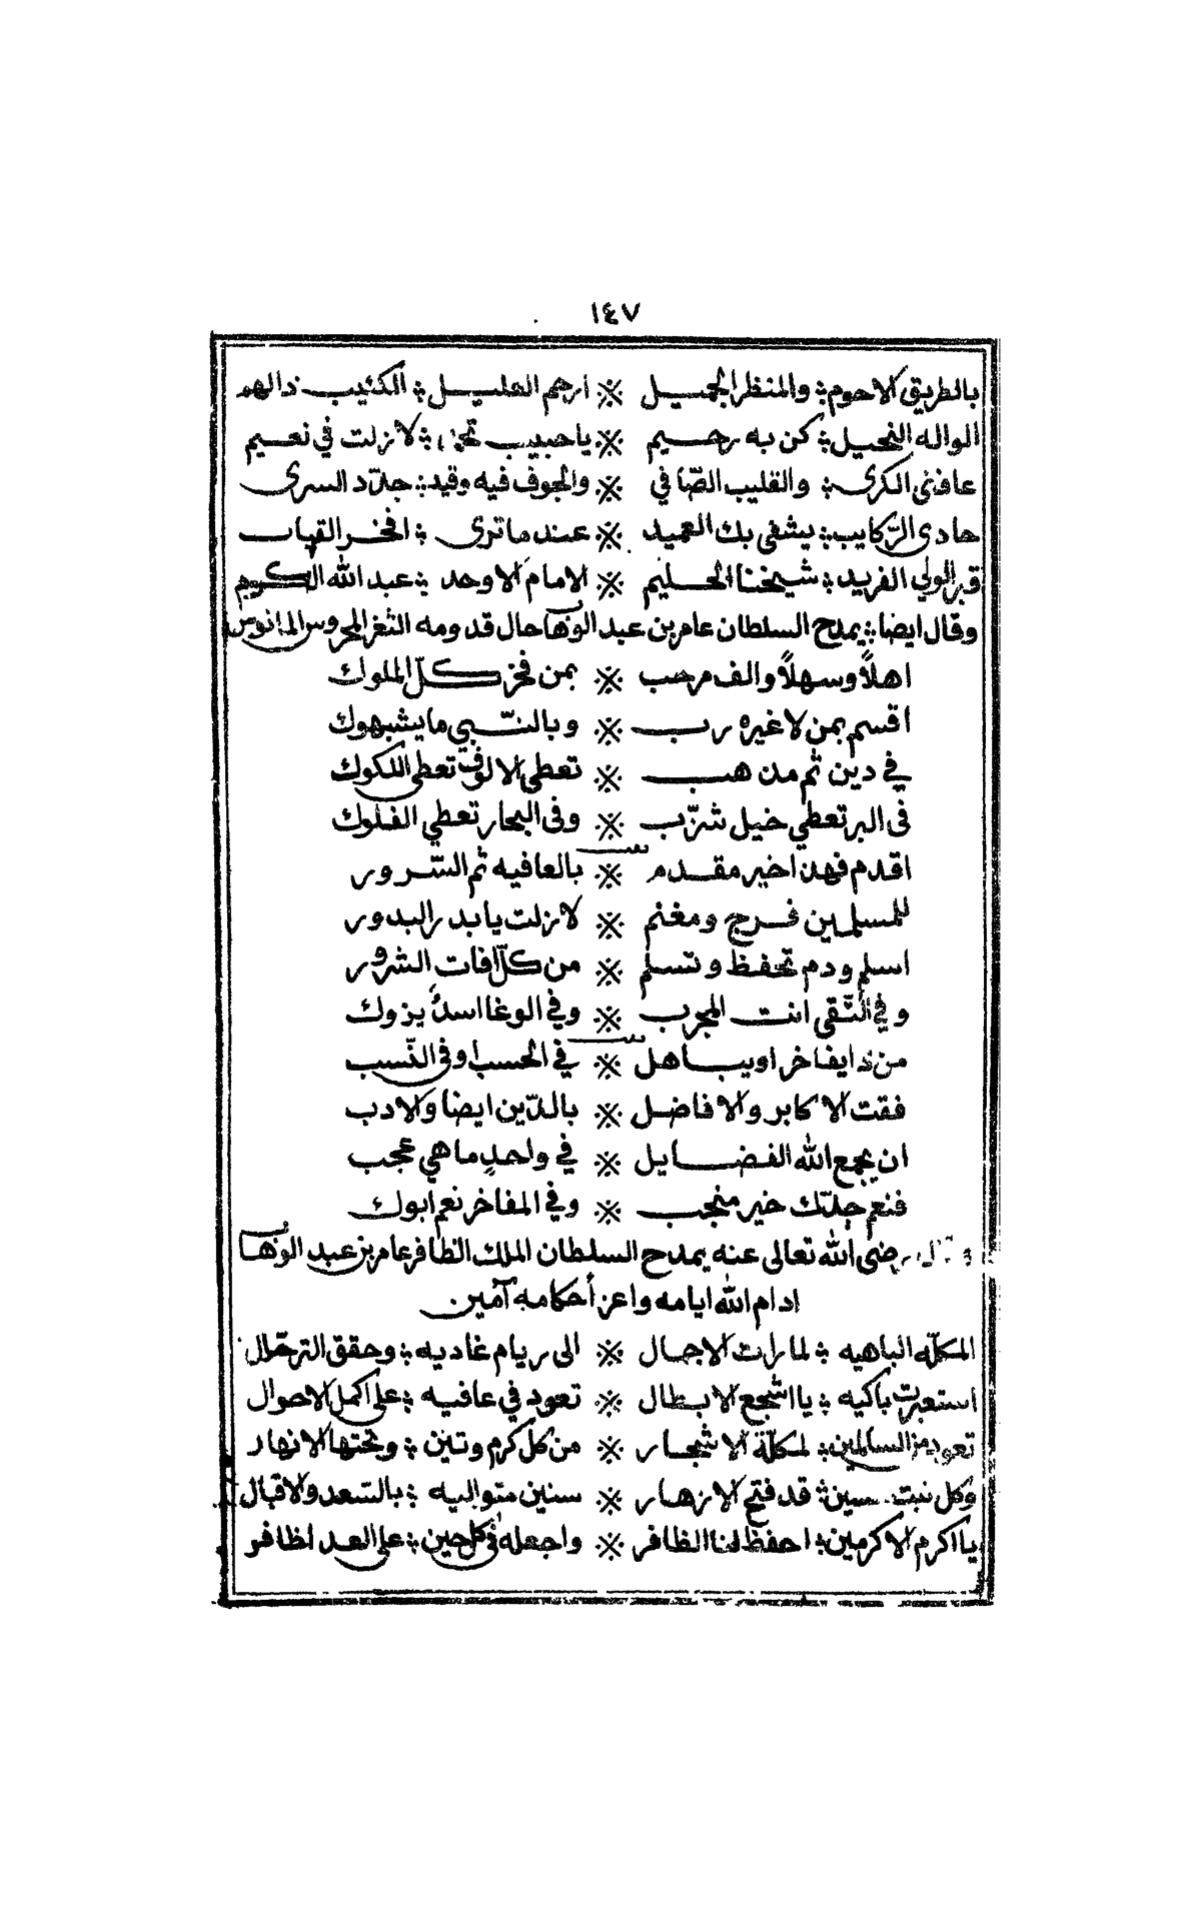 ١٤٧
بالطريق الاحوم ؞ والمنظر الجميل ※ ارحم العليل ؞ الكئيب ذالهم
الواله النحيل ؞ كن به رحيم ※ يا حبيب ؞ لا زلت في نعيم
عافنى الكرى ؞ والقليب الصّافي ※ والجوف فيه وقيد ؞ جدّد السرى
حادى الرّكايب ؞ يشفى بك العميد ※ عند ما ترى ؞ افخر القباب
قبر الولي الفريد ؞ شيخنا الحليم ※ الامام الاوحد ؞ عبد الله الكريم
وقال ايضا ؞ يمدح السلطان عامر بن عبد الوهاب حال قدومه الثغر المحروس المانوس
اهلاً وسهلاً والف مرحب ※ بمن فخر كلّ الملوك
اقسم بمن لا غيره رب ※ وبالنّبي ما يشبهوك
في دين ثم من هب ※ تعطى الالوف تعطى اللكوك
فى البر تعطي خيل شزّب ※ وفى البحار تعطي الفلوك
اقدم فهذا خير مقدم ※ بالعافيه ثم السّرور
للمسلمين فرج ومغنم ※ لا زلت يا بدر البدور
اسلم ودم تحفظ وتسلم ※ من كلّ افات الشرور
وفي التّقى انت المجرب ※ وفي الوغا اسدٌ يزوك
من ذا يفاخر او يباهل ※ في الحسب او فى النّسب
فقت الاكابر والافاضل ※ بالدّين ايضا والادب
ان يجمع الله الفضايل ※ في واحدٍ ما هي عجب
فنعم جدّك خير منجب ※ وفي المفاخر نعم ابوك
وقال رضى الله تعالى عنه يمدح السلطان الملك الظافر عامر بن عبد الوهاب
ادام الله ايامه واعز أحكامه آمين
المكلّه الباهيه ؞ لما رات الاجمال ※ الى ريام غاديه ؞ وحقق الترحّال
استعبرت باكيه ؞ يا اشجع الابطال ※ تعود في عافيه ؞ على اكمل الاحوال
تعود من السالمين ؞ لمكلّة الاشجار ※ من كل كرم وتين ؞ وتحتها الانهار
وكل نبت ؞ قد فتح الازهار ※ سنين متواليه ؞ بالسّعد والاقبال
يا اكرم الاكرمين ؞ احفظ لنا الظافر ※ واجعله فى كل حين ؞ على العدا ظافر